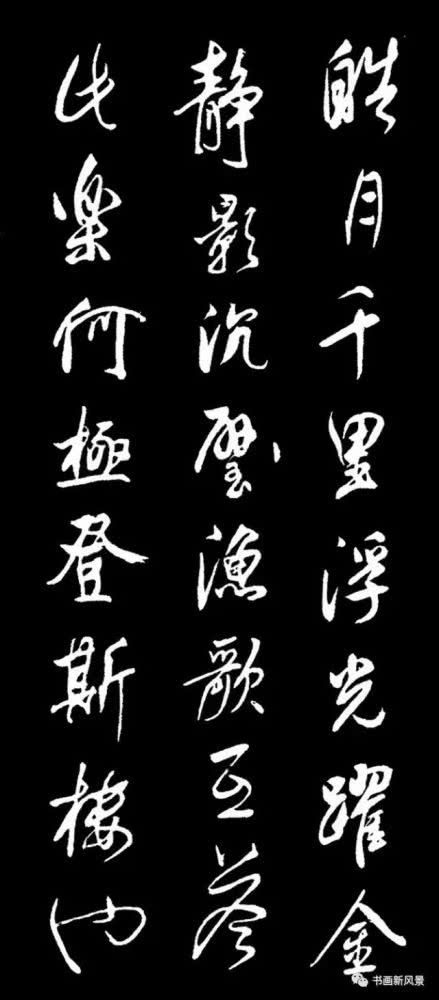 皓月千里浮光躍金
静影沉璧漁歌互答
此樂何極登斯樓也
书画新风景